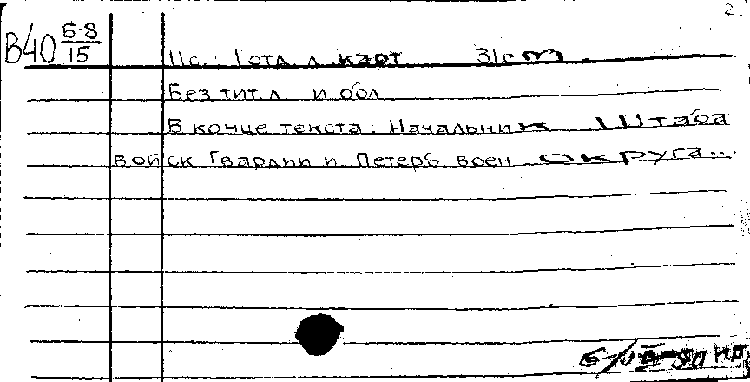 2
В40 Б-8/15
1 отд. л. карт 31см.
Без тит. л и обл
В конце текста: Начальник Штаба
войск Гвардии и Петерб. воен. округа...